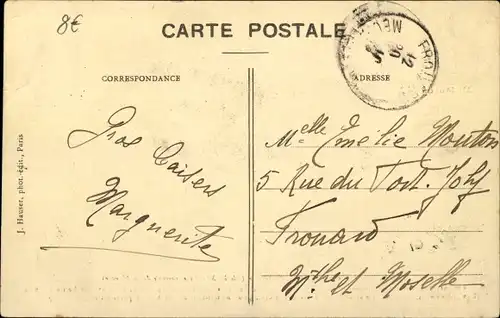 8€
CARTE POSTALE
CORRESPONDANCE
ADRESSE
J. Hauser, phot.-édit., Paris
Gros Baisers
Marguerite
Melle Emelie Mouton
5 Rue du
Frouard
Mthe et Moselle